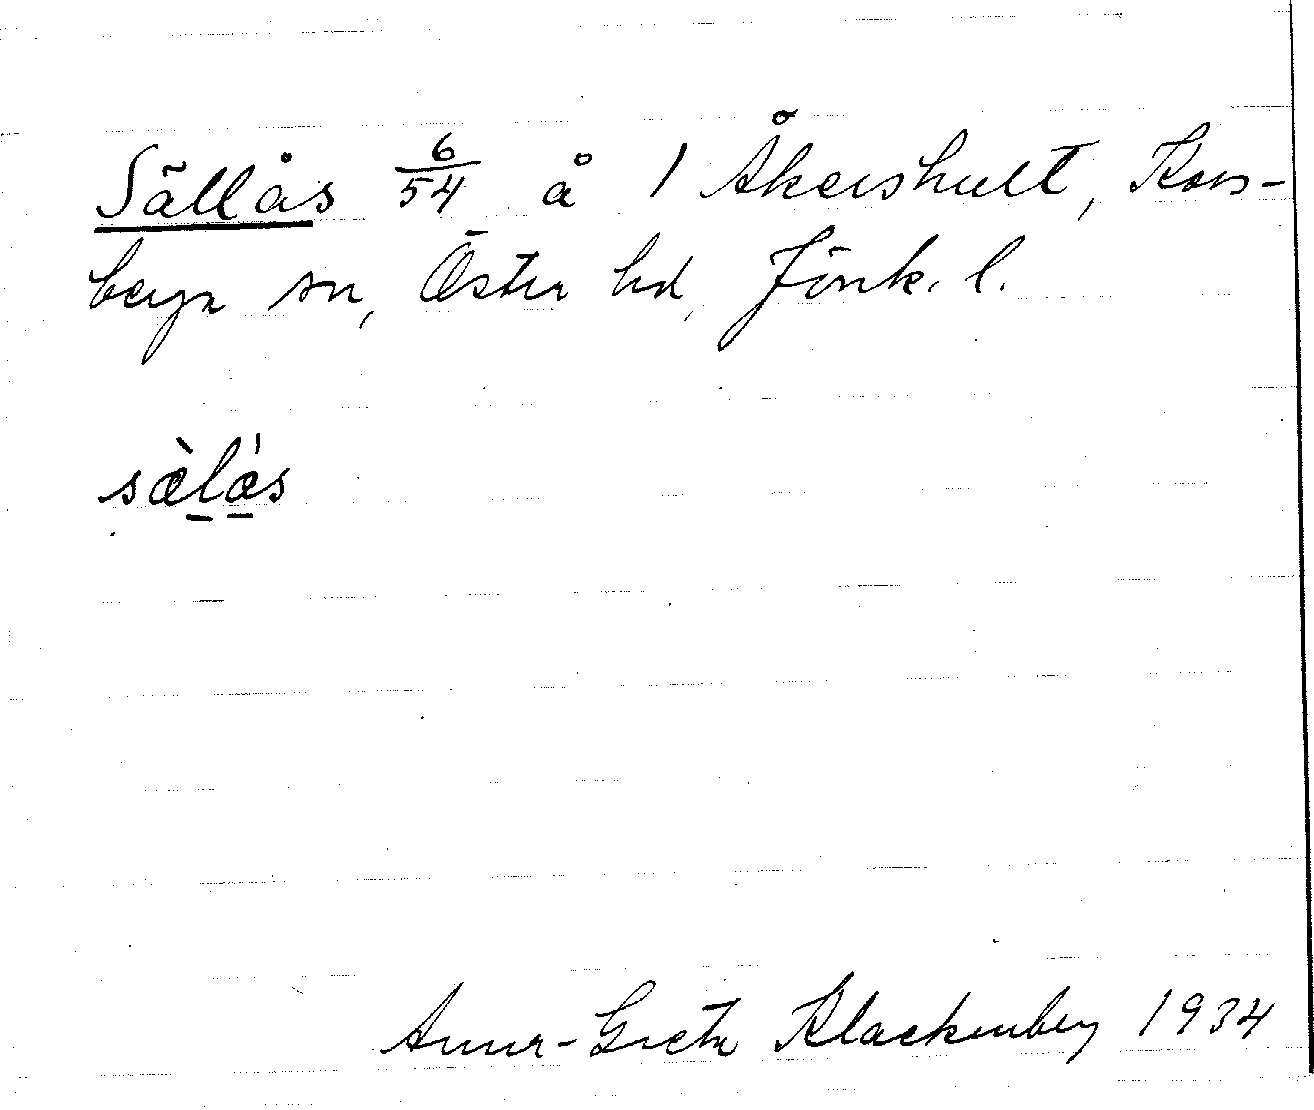 Sällås 6/54 å 1 Åkershult, Kors-
berga sn, Östra hd, Jönk. l.
sæ̀lås
Anna-Greta Klackenberg 1934